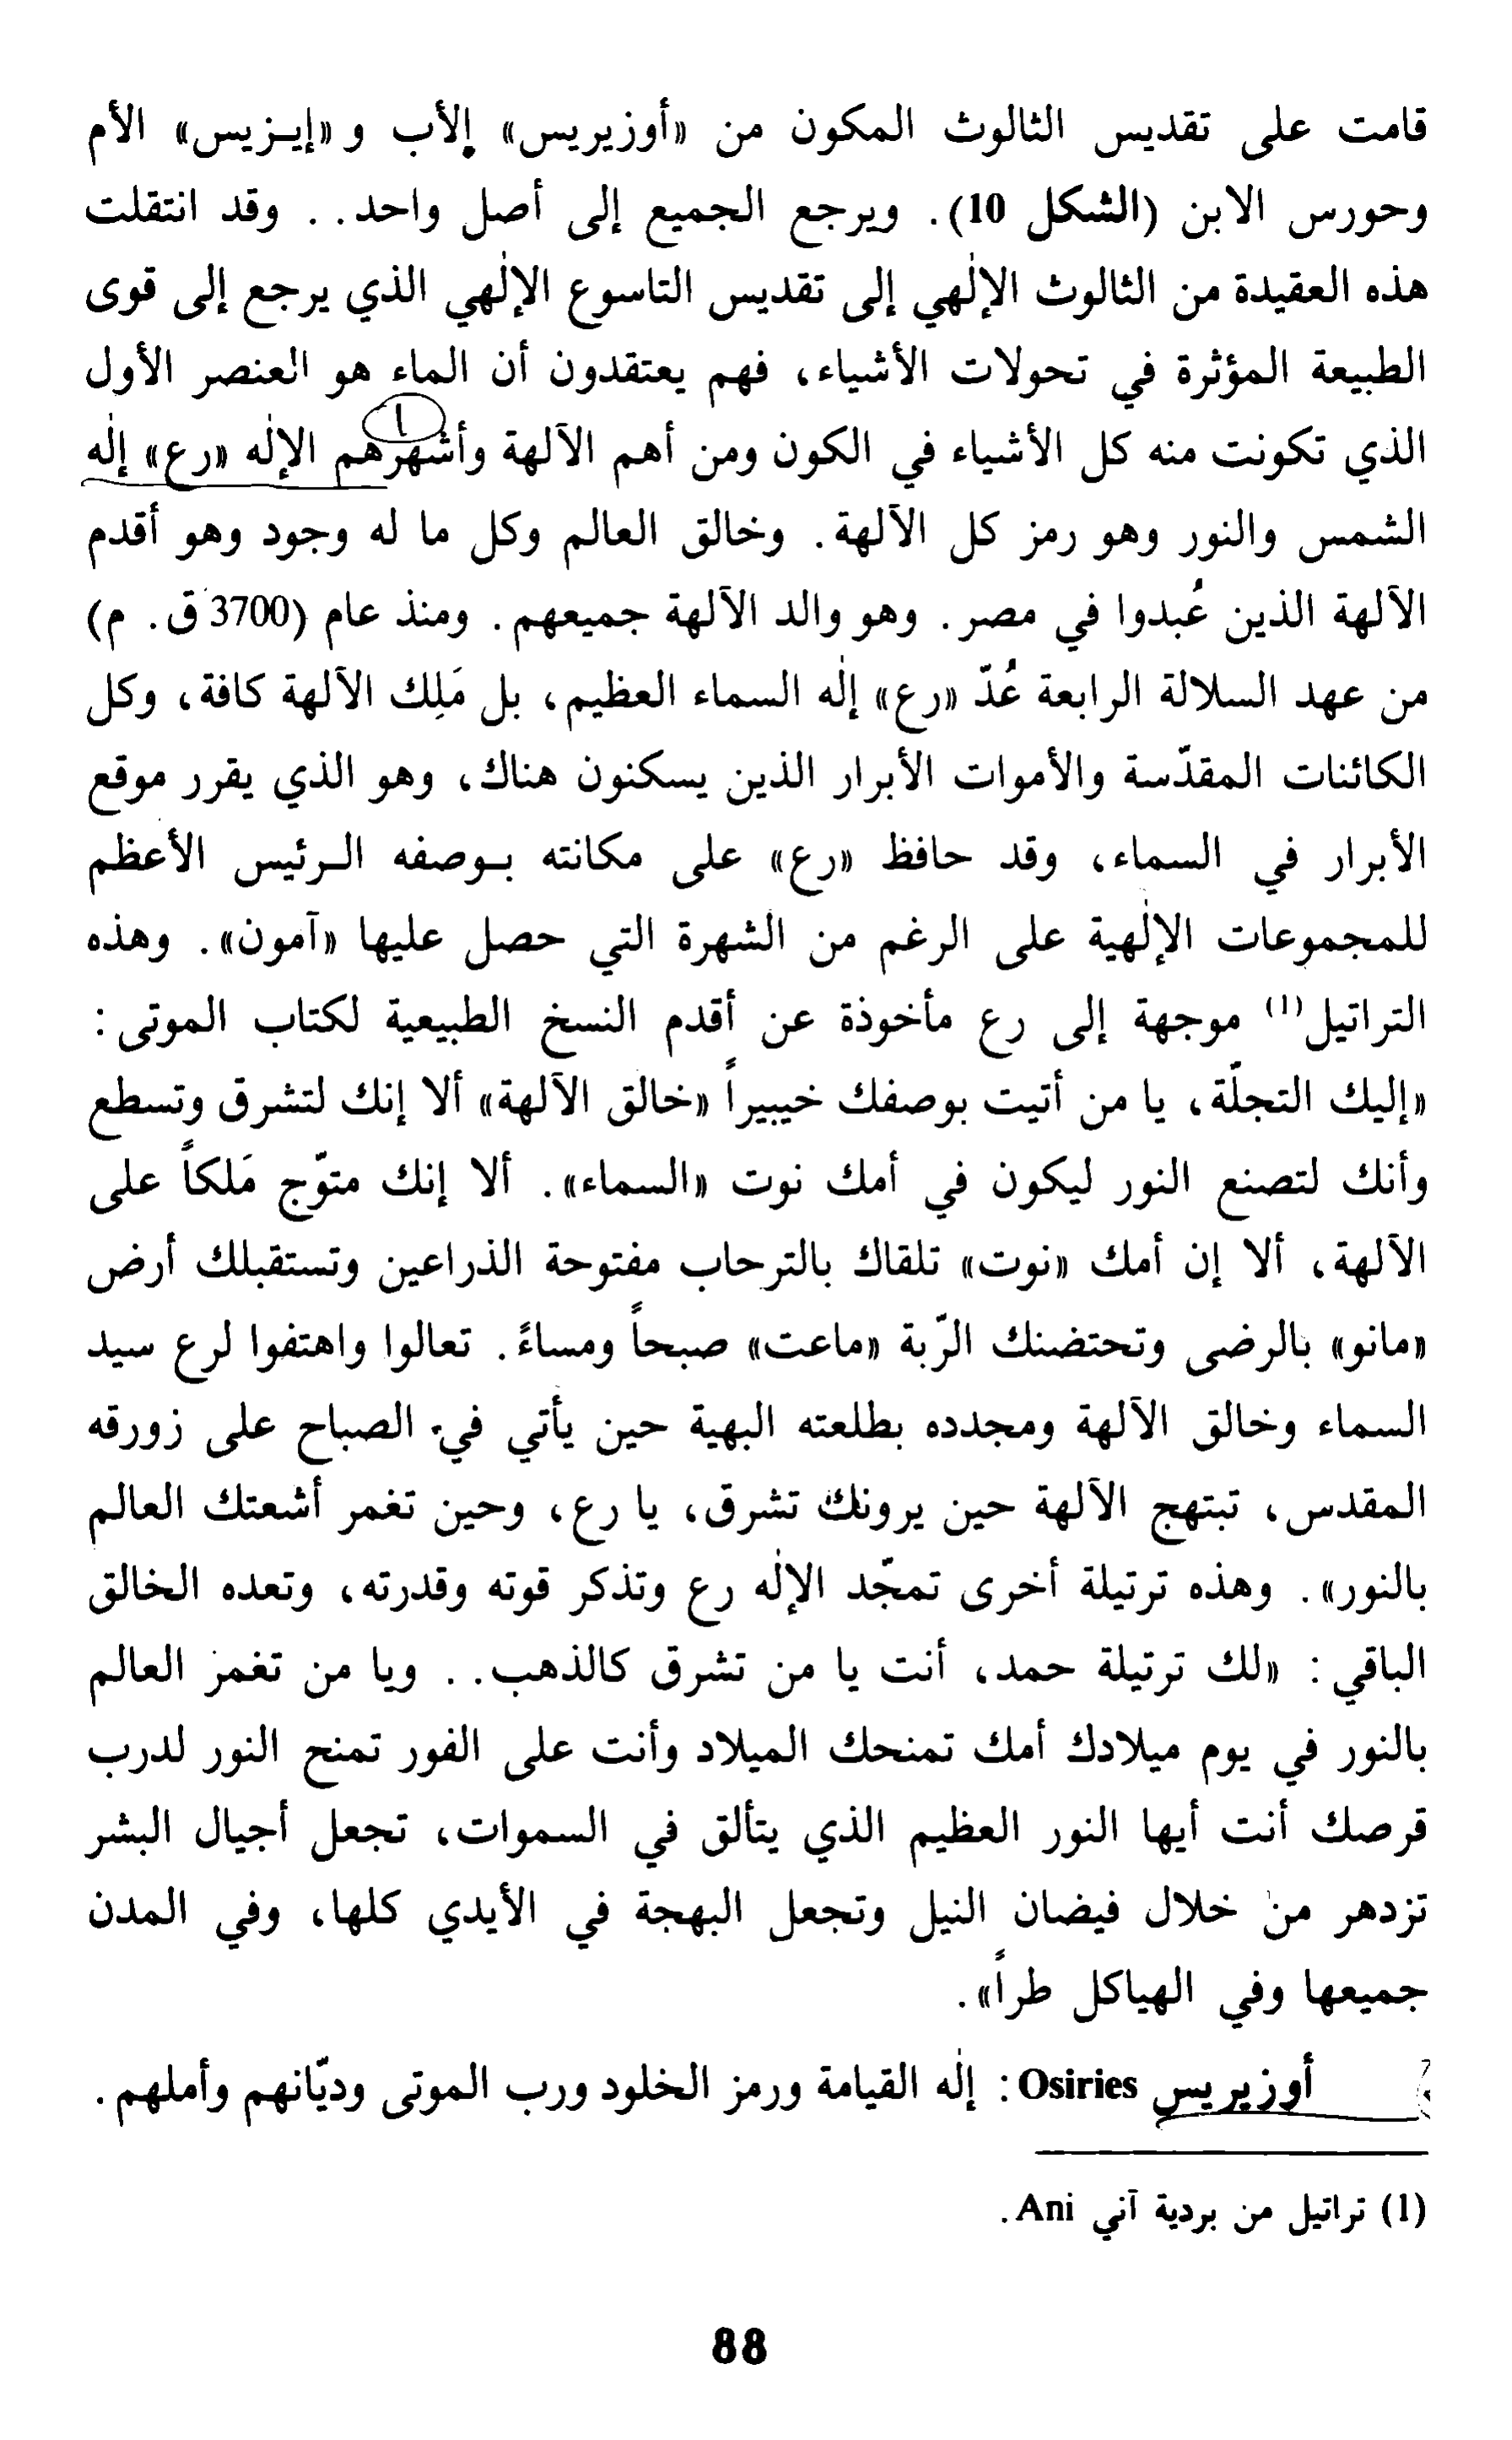 قامت على تقديس الثالوث المكون من «أوزيريس» الأب و«إيـزيس» الأم
وحورس الابن (الشكل 10). ويرجع الجميع إلى أصل واحد.. وقد انتقلت
هذه العقيدة من الثالوث الإلٰهي إلى تقديس التاسوع الإلٰهي الذي يرجع إلى قوى
الطبيعة المؤثرة في تحولات الأشياء، فهم يعتقدون أن الماء هو العنصر الأول
الذي تكونت منه كل الأشياء في الكون ومن أهم الآلهة وأشهرهم الإلٰه «رع» إلٰه
الشمس والنور وهو رمز كل الآلهة. وخالق العالم وكل ما له وجود وهو أقدم
الآلهة الذين عُبدوا في مصر. وهو والد الآلهة جميعهم. ومنذ عام (3700 ق. م)
من عهد السلالة الرابعة عُدّ «رع» إلٰه السماء العظيم، بل مَلِك الآلهة كافة، وكل
الكائنات المقدّسة والأموات الأبرار الذين يسكنون هناك، وهو الذي يقرر موقع
الأبرار في السماء، وقد حافظ «رع» على مكانته بـوصفه الـرئيس الأعظم
للمجموعات الإلٰهية على الرغم من الشهرة التي حصل عليها «آمون». وهذه
التراتيل(1) موجهة إلى رع مأخوذة عن أقدم النسخ الطبيعية لكتاب الموتى:
«إليك التجلّة، يا من أتيت بوصفك خيبيراً «خالق الآلهة» ألا إنك لتشرق وتسطع
وأنك لتصنع النور ليكون في أمك نوت «السماء». ألا إنك متوّج مَلكاً على
الآلهة، ألا إن أمك «نوت» تلقاك بالترحاب مفتوحة الذراعين وتستقبلك أرض
«مانو» بالرضى وتحتضنك الرّبة «ماعت» صبحاً ومساءً. تعالوا واهتفوا لرع سيد
السماء وخالق الآلهة ومجدده بطلعته البهية حين يأتي في الصباح على زورقه
المقدس، تبتهج الآلهة حين يرونك تشرق، يا رع، وحين تغمر أشعتك العالم
بالنور». وهذه ترتيلة أخرى تمجّد الإلٰه رع وتذكر قوته وقدرته، وتعده الخالق
الباقي: «لك ترتيلة حمد، أنت يا من تشرق كالذهب.. ويا من تغمر العالم
بالنور في يوم ميلادك أمك تمنحك الميلاد وأنت على الفور تمنح النور لدرب
قرصك أنت أيها النور العظيم الذي يتألق في السموات، تجعل أجيال البشر
تزدهر من خلال فيضان النيل وتجعل البهجة في الأيدي كلها، وفي المدن
جميعها وفي الهياكل طراً».
أوزيريس Osiries: إلٰه القيامة ورمز الخلود ورب الموتى وديّانهم وأملهم.
(1) تراتيل من بردية آني Ani.
88